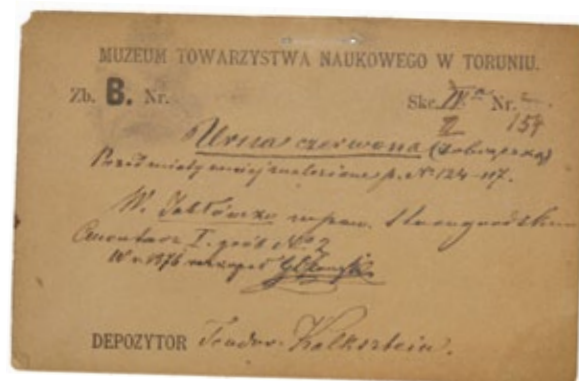 MUZEUM TOWARZYSTWA NAUKOWEGO W TORUNIU.
Zb. B. Nr.
Skc. Nr.
158
Urna czerwona
Przedmioty w niej znalezione p. Nr 124-117.
W. Jabłówko w pow. Starogrodzkim
Cmentarz I. grób No. 2
W r. 1876
DEPOZYTOR Teodor Kalkstein.